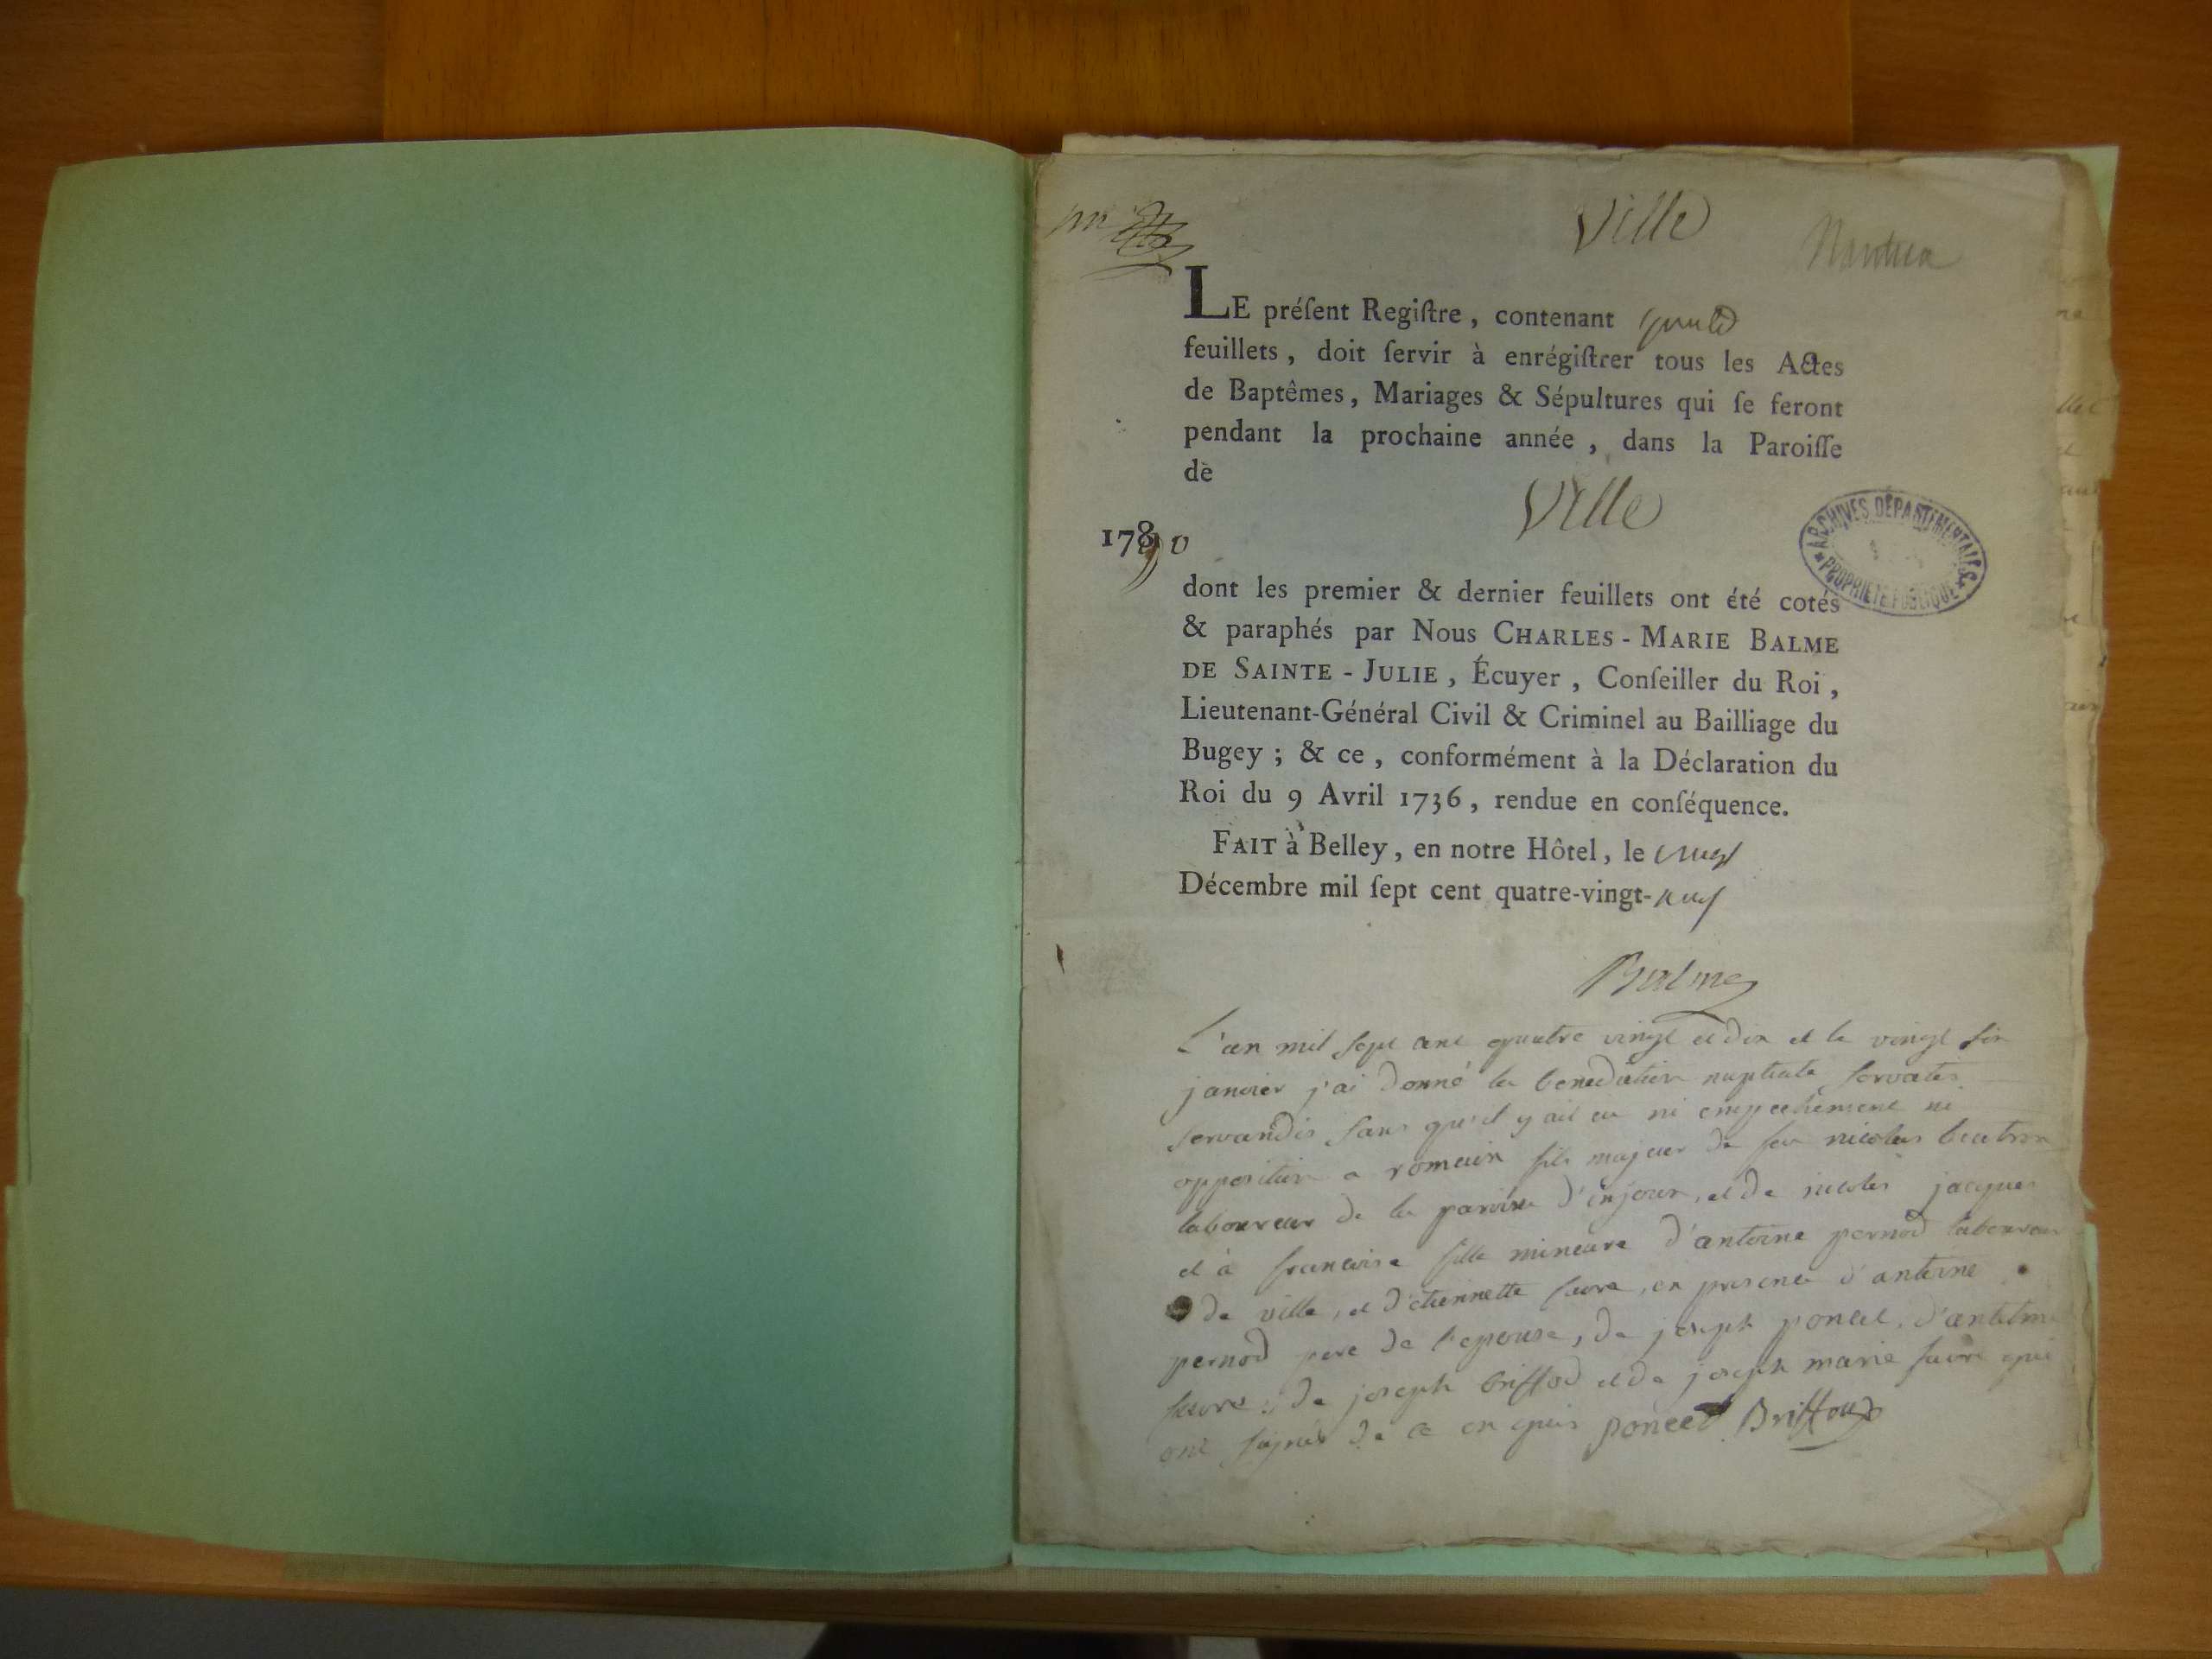 Ville
Nantua
LE préſent Regiſtre, contenant
feuillets, doit ſervir à enrégiſtrer tous les Actes
de Baptêmes, Mariages & Sépultures qui ſe feront
pendant la prochaine année, dans la Paroiſſe
de
Ville
1790
ARCHIVES DÉPARTEMENTALES
PROPRIÉTÉ PUBLIQUE
dont les premier & dernier feuillets ont été cotés
& paraphés par Nous CHARLES-MARIE BALME
DE SAINTE-JULIE, Écuyer, Conſeiller du Roi,
Lieutenant-Général Civil & Criminel au Bailliage du
Bugey ; & ce, conformément à la Déclaration du
Roi du 9 Avril 1736, rendue en conſéquence.
FAIT à Belley, en notre Hôtel, le
Décembre mil ſept cent quatre-vingt-neuf
Balme
L'an mil sept cent quatre vingt et dix et le vingt six
janvier j'ai donné la benediction nuptiale servatis
servandis sans qu'il y ait eu ni empechement ni
opposition a romain fils majeur de feu nicolas
laboureur de la paroisse d'injoux, et de jacques
et à francoise fille mineure d'antoine pernod laboureur
de ville, et d'etiennette favre, en presence d'antoine
pernod pere de l'epouse, de joseph poncet, d'antelme
favre, de joseph briffod et de joseph marie favre qui
ont signés de ce enquis poncet Briffoud